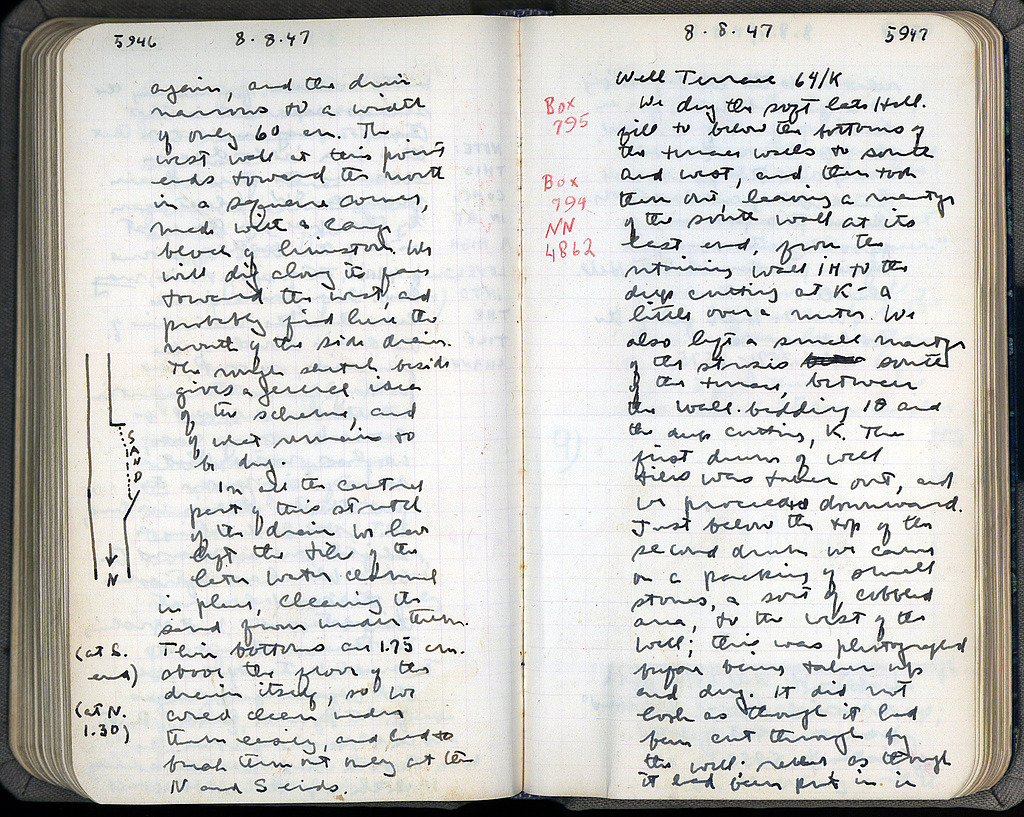 5946 8.8.47
again, and the drain
narrows to a width
of only 60 cm. The
west wall at this point
ends toward the north
in a square corner,
made with a large
block of limestone. We
will dig along its face
toward the west, and
probably find here the
mouth of the side drain.
The rough sketch beside
gives a general idea
of the scheme, and
of what remains to
be dug.
SAND
N
In all the central
part of this stretch
of the drain we have
left the tiles of the
later water channel
in place, clearing the
sand from under them.
(at S. end)
Their bottoms are 1.75 cm.
above the floor of the
drain itself, so we
(at N. 1.30)
could clean under
them easily, and had to
break them out only at the
N and S ends.
8.8.47 5947
Well Terrace 64/K
Box 795
We dug the soft late Hell.
fill to below the bottoms of
the terrace walls to south
Box 794
NN 4862
and west, and then took
them out, leaving a martyr
of the south wall at its
east end, from the
retaining wall 14 to the
deep cutting at K - a
little over a meter. We
also left a small martyr
of the strosis south
of the terrace, between
the wall-bedding 18 and
the deep cutting, K. The
first drum of well
tiles was taken out, and
we proceeded downward.
Just below the top of the
second drum we came
on a packing of small
stones, a sort of cobbled
area, to the west of the
well; this was photographed
before being taken up
and dug. It did not
look as though it had
been cut through by
the well: rather as though
it had been put in in